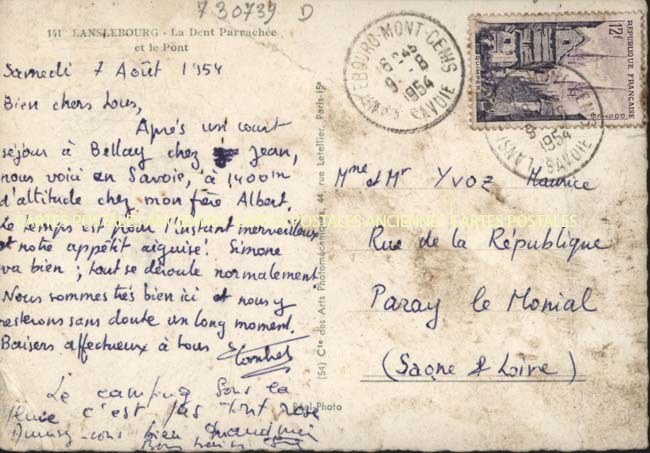 730739 D
141 LANSLEBOURG - La Dent Parrachée
et le Pont
Samedi 7 Août 1954
Bien chers tous,
Après un court
séjour à Bellay chez Jean,
nous voici en Savoie, à 1400m
d'altitude chez mon frère Albert,
Le temps est pour l'instant merveilleux
et notre appétit aiguisé! Simone
va bien ; tout se déroule normalement
Nous sommes très bien ici et nous y
resterons sans doute un long moment.
Baisers affectueux à tous
Le camping sous la
pluie c'est pas tout rose
bien
CARTES POSTALES ANCIENNES
CARTES POSTALES
(54) Cie des Arts Photomécaniques, 44, rue Letellier, Paris-15e
Réal-Photo
LANSLEBOURG-MONT-CENIS
16-245
9 -8
1954
SAVOIE
12f
REPUBLIQUE FRANÇAISE
QUIMPER
MONT-CENIS
1954
SAVOIE
Mme et Mr YVOZ Maurice
Rue de la République
Paray le Monial
(Saone & Loire)